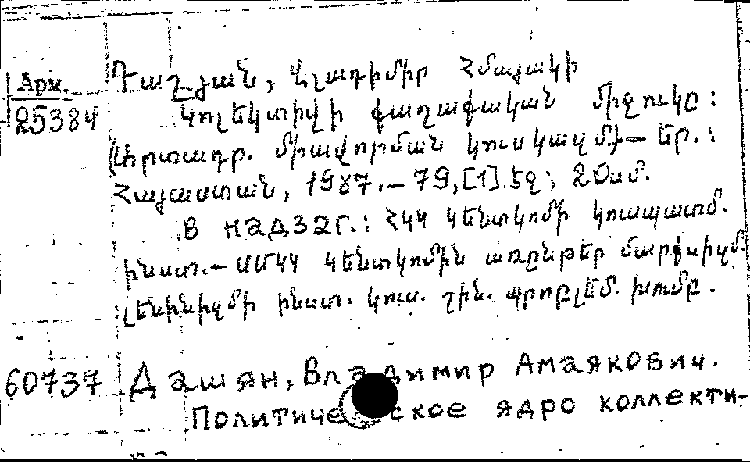 Арм.
25384
Դաշյան, Վլադիմիր Հմայակի
Կոլեկտիվի քաղաքական միջուկը:
Արտադր. միավորման կուսկազմ.— Եր.:
Հայաստան, 1987.— 79,[1] էջ; 20սմ.
В надзаг.: ՀԿԿ Կենտկոմի կուսպատմ.
ինստ.— ՍՄԿԿ Կենտկոմին առընթեր մարքսիզմ.
լենինիզմի ինստ. կուս. շին. պրոբլեմ. խումբ.
60737 Дашян, Владимир Амаякович.
Политическое ядро коллекти-